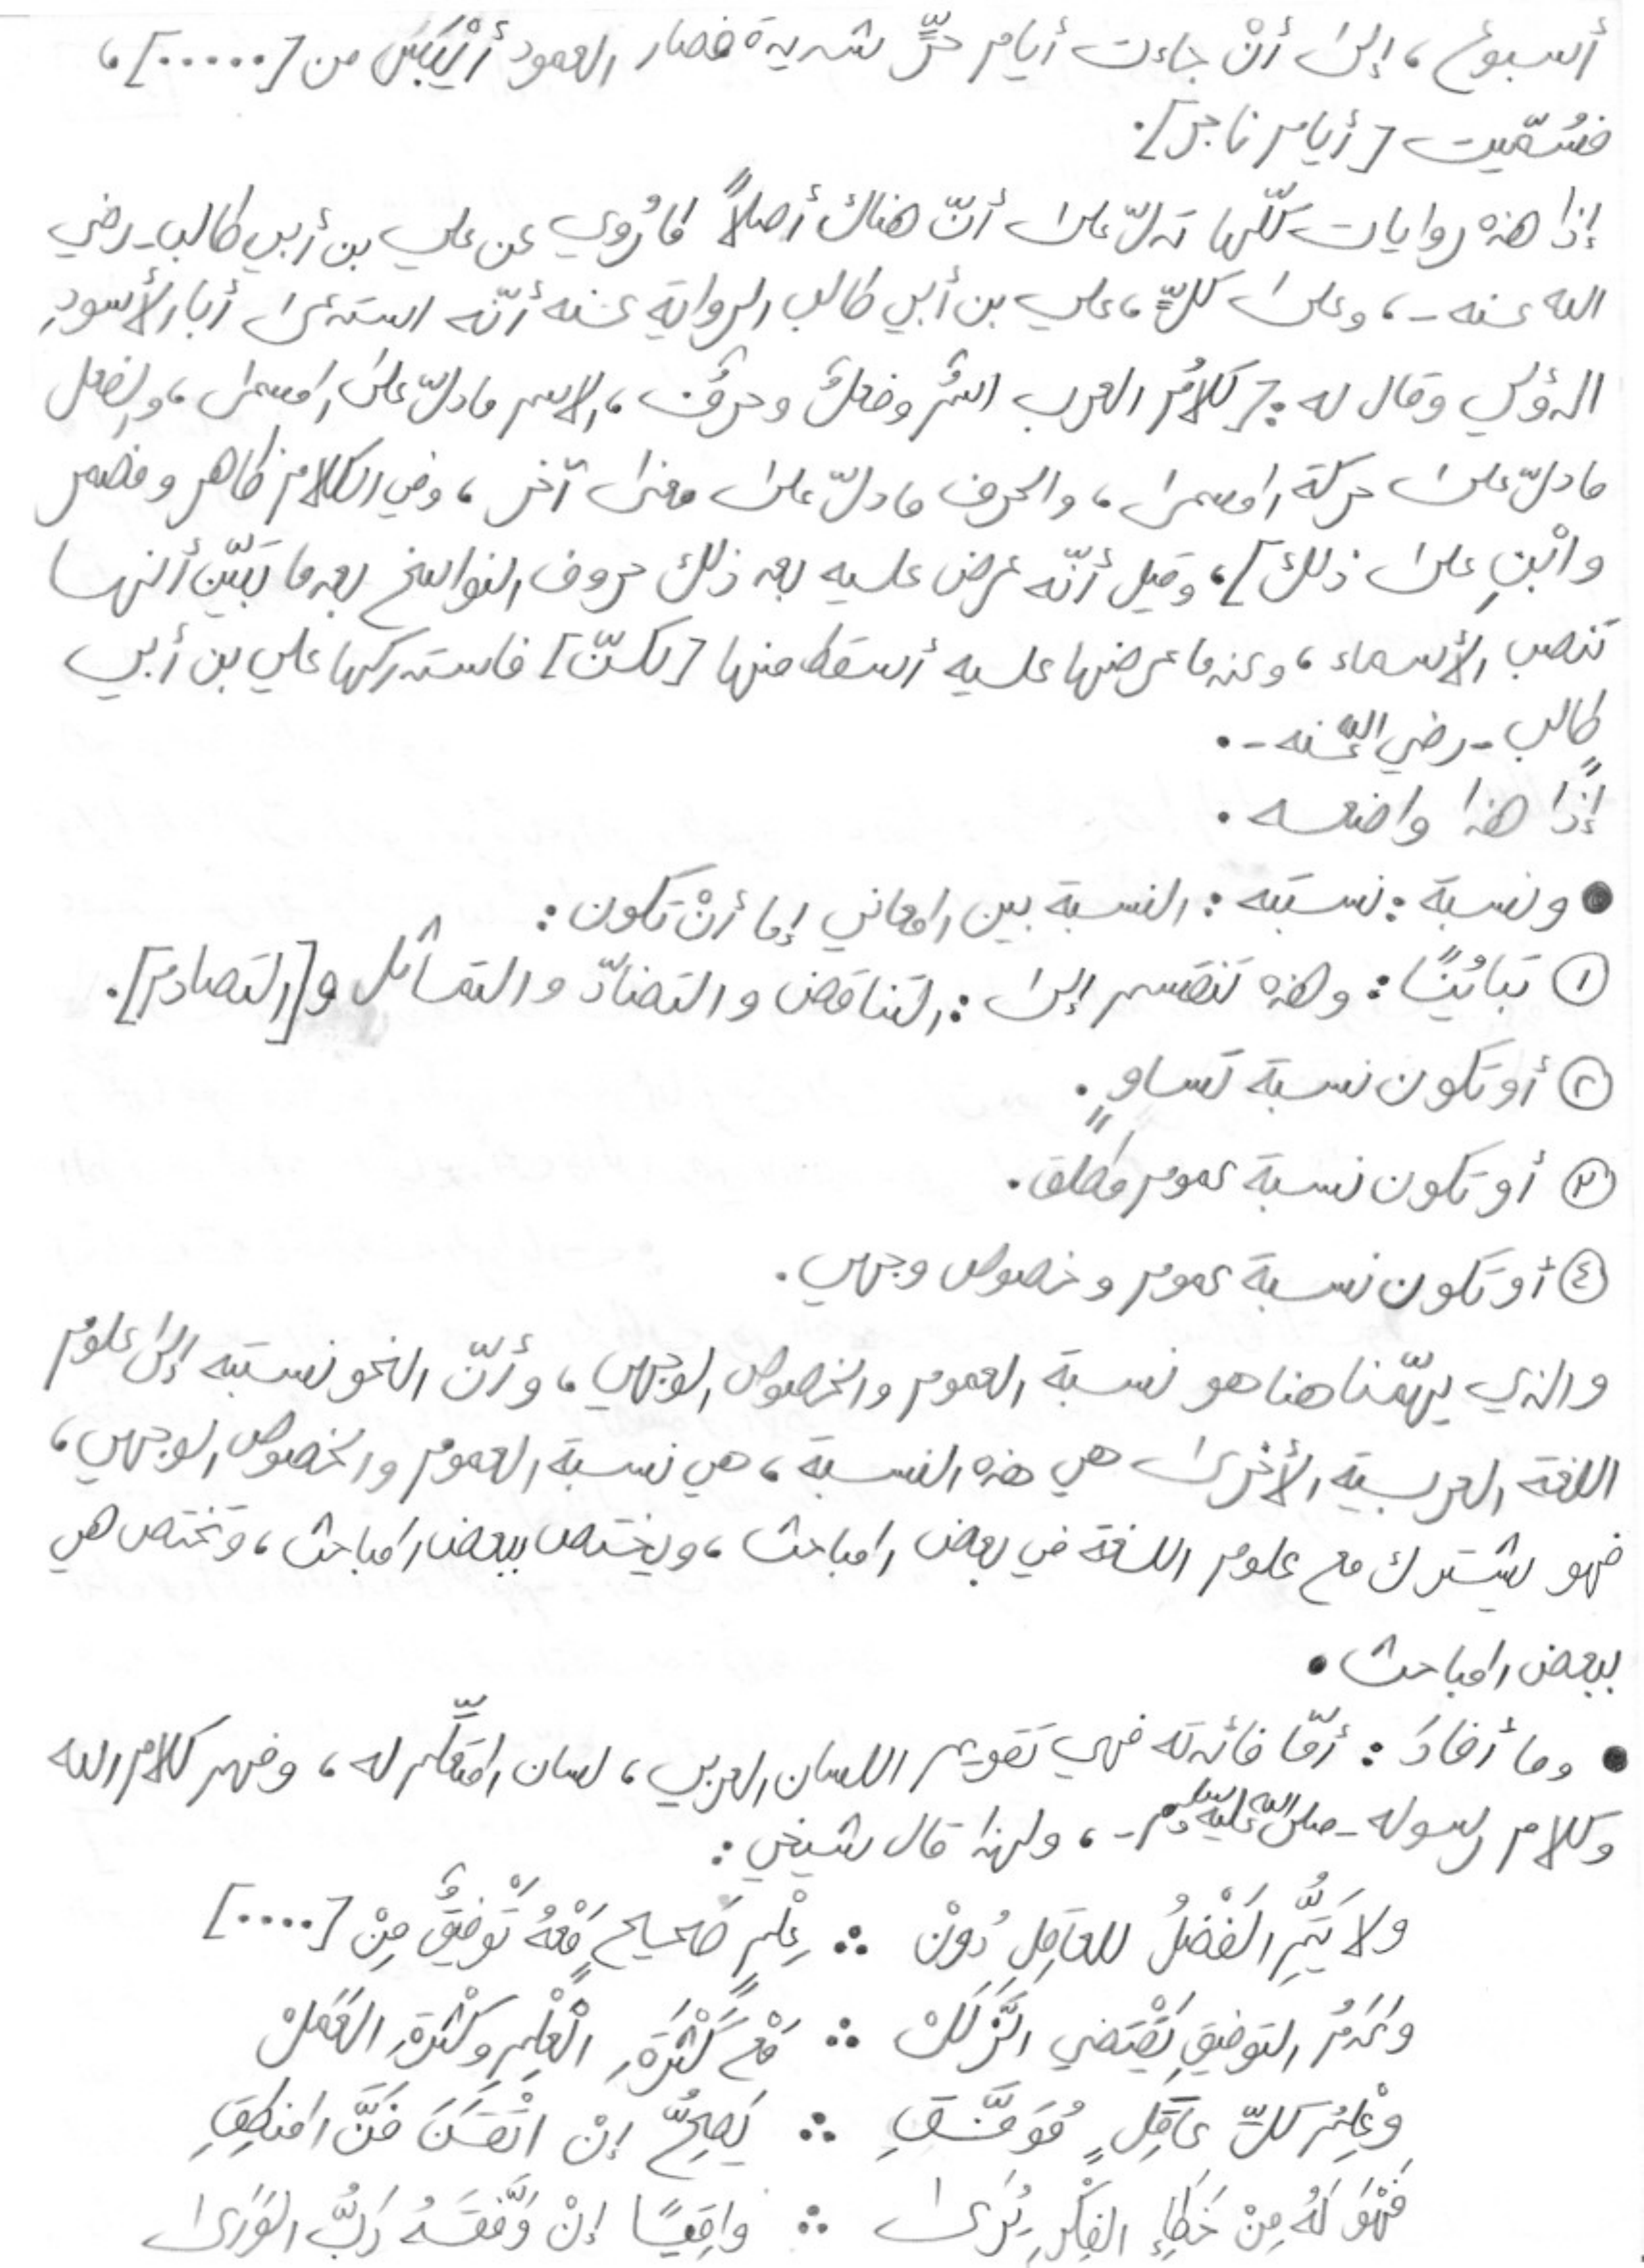 أسبوع، إلى أنْ جاءت أيام حرٍّ شديدة فصار العمود أَيْبَسَ من [.....]،
فسُمّيت [أيام ناجر].
إذًا هذه روايات كلّها تدلّ على أنّ هناك أصلاً لما رُوي عن علي بن أبي طالب - رضي
الله عنه -، وعلى كلٍّ، علي بن أبي طالب الرواية عنه أنّه استدعى أبا الأسودِ
الدؤلي وقال له: [كلامُ العرب اسمٌ وفعلٌ وحرفٌ، الاسم مادلّ على المسمى، والفعل
مادلّ على حركة المسمى، والحرف مادلّ على معنى آخر، وفي الكلام ظاهر ومضمر
وابْنِ على ذلك]، وقيل أنّه عرض عليه بعد ذلك حروف النواسخ بعدما تَبَيّن أنها
تَنصب الأسماء، وعندما عرضها عليه أسقط منها [لكنّ] فاستدركها علي بن أبي
طالبٍ - رضي الله عنه -.
إذًا هذا واضعه.
● ونسبة: نسبَته: النسبة بين المعاني إما أنْ تكون:
① تبايُنًا: وهذه تنقسم إلى: التناقض والتضادّ والتماثل و[التصادم].
② أو تكون نسبة تَساوٍ.
③ أو تكون نسبة عموم مطلق.
④ أو تكون نسبة عموم وخصوص وجهي.
والذي يهمّنا هنا هو نسبة العموم والخصوص الوجهي، وأنّ النحو نسبَته إلى علوم
اللغة العربية الأخرى هي هذه النسبة، هي نسبة العموم والخصوص الوجهي،
فهو يشترك مع علوم اللغة في بعض المباحث، ويختص ببعض المباحث، وتختص هي
ببعض المباحث.
● وما أفادَ: أمّا فائدته فهي تَقويم اللسان العربي، لسان المتعلِّم له، وفهم كلام الله
وكلام رسوله - صلى الله عليه وسلم -، ولهذا قال شيخي:
ولا يَتِمُّ الفَضْلُ للعاقِلِ دُوْنْ ∴ عِلْمٍ صَحيحٍ مَعْهُ تَوْفِيقٌ مِنْ [....]
وعَدَمُ التوفيقِ يَقْتَضي الزَّلَلْ ∴ مَعْ كَثْرَةِ العِلْمِ وكَثْرَةِ العَمَلْ
وعِلْمُ كلِّ عاقِلٍ مُوَفَّقِ ∴ يَصِحُّ إنْ اتْقَنَ فَنَّ المنطِقِ
فَهْوَ لَهُ مِنْ خَطإِ الفِكْرِ يُرَى ∴ واقِيًا إنْ وَفَّقَهُ رَبُّ الوَرَى